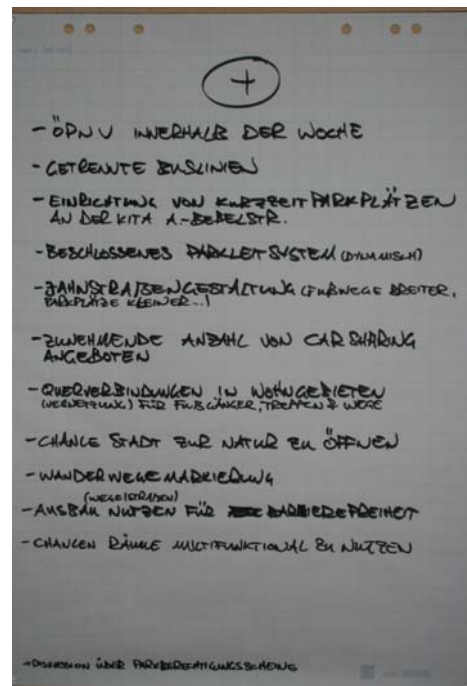 +
- ÖPNV INNERHALB DER WOCHE
- GETRENNTE BUSLINIEN
- EINRICHTUNG VON KURZZEIT PARKPLÄTZEN
AN DER KITA A.-BEBELSTR.
- BESCHLOSSENES PARKLEITSYSTEM (DYNAMISCH)
- JAHNSTRAßENGESTALTUNG (FUßWEGE BREITER,
PARKPLÄTZE KLEINER...)
- ZUNEHMENDE ANZAHL VON CAR SHARING
ANGEBOTEN
- QUERVERBINDUNGEN IN WOHNGEBIETEN
(VERNETZUNG) FÜR FUßGÄNGER, TREPPEN & WEGE
- CHANCE STADT ZUR NATUR ZU ÖFFNEN
- WANDERWEGEMARKIERUNG
(WEGE/STRAßEN)
- AUSBAU NUTZEN FÜR BARRIEREFREIHEIT
- CHANCEN RÄUME MULTIFUNKTIONAL ZU NUTZEN
- DISKUSSION ÜBER PARKBERECHTIGUNGSSCHEINE